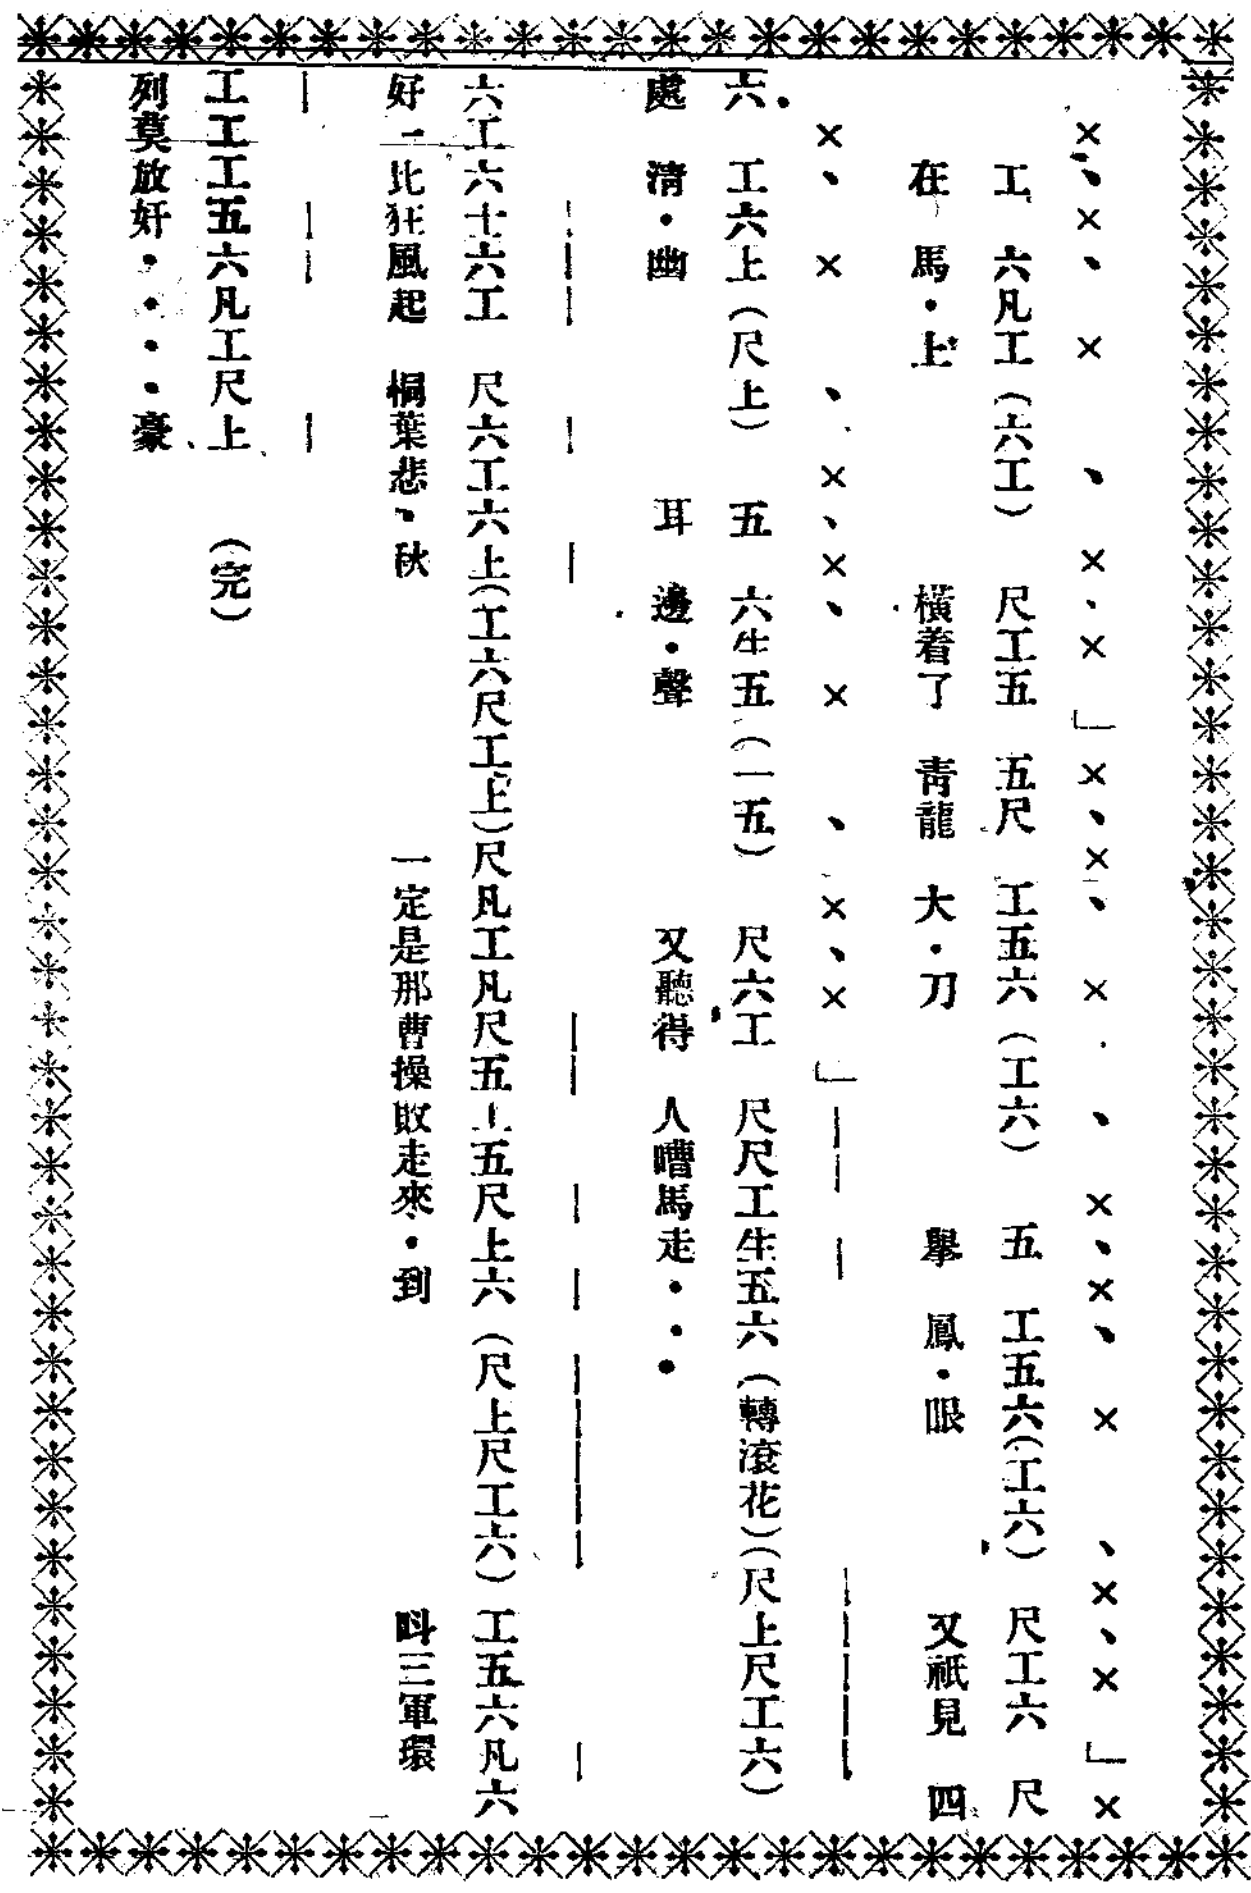 ×、×、 × 、 ×、× 」×、×、 × 、 ×、×、 × 、×、× 」×
工 六凡工(六工) 尺工五 五尺 工五六(工六) 五 工五六(工六) 尺工六 尺
在 馬・上 橫着了 青龍 大・刀 舉 鳳・眼 又祇見 四
×、 × 、 ×、×、 × 、 ×、× 」
六・ 工六上(尺上) 五 六生五(一五) 尺六工 尺尺工生五六(轉滾花)(尺上尺工六)
處 清・幽 耳 邊・聲 又聽得 人嘈馬走・・・
六工六士六工 尺六工六上(工六尺工上)尺凡工凡尺五上五尺上六(尺上尺工六) 工五六凡六
好一比狂風起 桐葉悲、秋 一定是那曹操敗走來・到 呌三軍環
工工工五六凡工尺上 (完)
列莫放奸・・・・豪